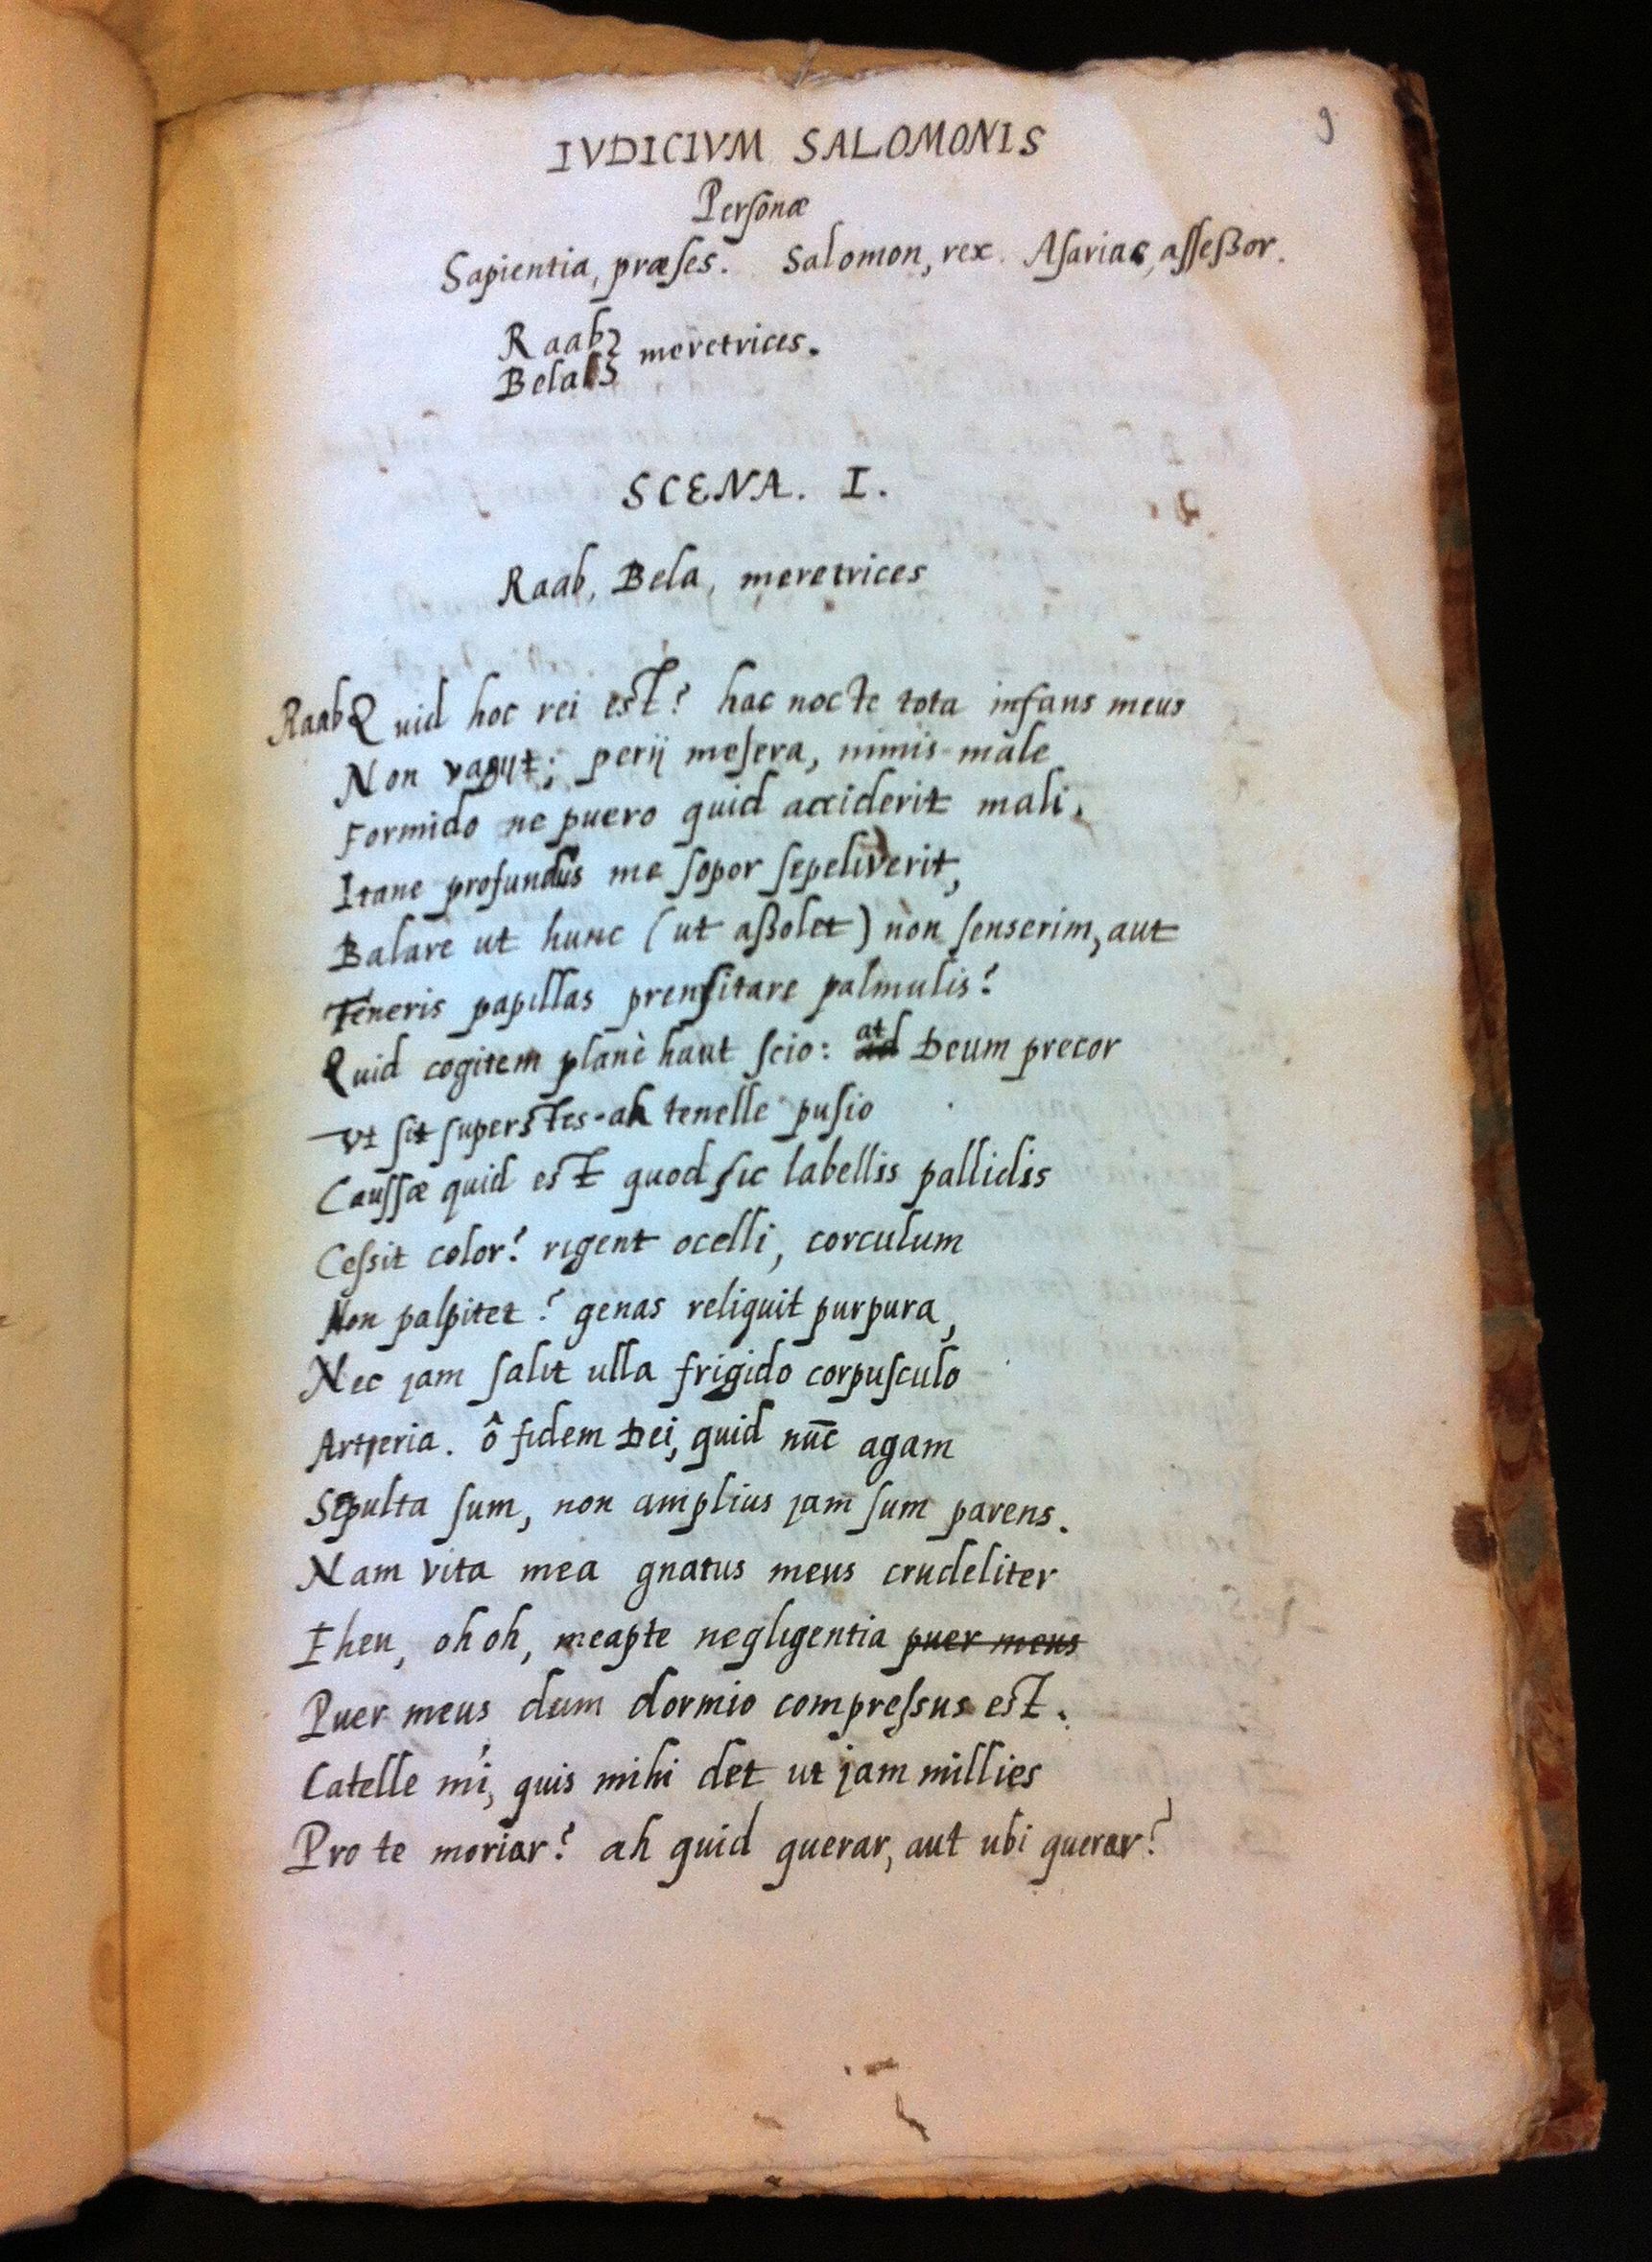 9
IVDICIVM SALOMONIS
Personæ
Sapientia, præses. Salomon, rex. Asarias, assessor.
Raab } meretrices.
Bela }
SCENA. I.
Raab, Bela, meretrices
Raab Quid hoc rei est? hac nocte tota infans meus
Non vagyt; perij mesera, nimis male
Formido ne puero quid acciderit mali.
Itane profundus me sopor sepeliverit,
Balare ut hunc (ut assolet) non senserim, aut
Teneris papillas prensitare palmulis?
Quid cogitem planè haut scio: at Deum precor
Vt sit superstes - ah tenelle pusio
Caussæ quid est quod sic labellis pallidis
Cessit color? rigent ocelli, corculum
Non palpitet? genas reliquit purpura,
Nec jam salit ulla frigido corpusculo
Arteria. ô fidem Dei, quid nūc agam
Sepulta sum, non amplius jam sum parens.
Nam vita mea gnatus meus crudeliter
Eheu, oh oh, meapte negligentia puer meus
Puer meus dum dormio compressus est.
Catelle mi, quis mihi det ut jam millies
Pro te moriar? ah quid querar, aut ubi querar?